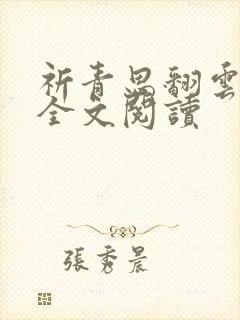 祈青思翻雲
全文閱讀
張秀晨